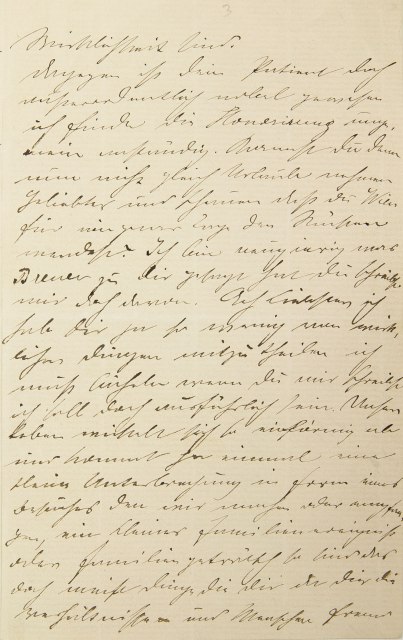 3
Wirklichkeit sind.
dagegen ist dein Patient doch
außerordentlich nobel gewesen
ich finde die Honorirung unge-
mein anständig. Brauchst Du denn
nun nicht gleich Urlaub nehmen
Geliebter und daß du Wien
für einige Tage den Rücken
wendest? Ich bin neugierig was
Breuer zu Dir gesagt hat du schreibst
mir doch davon. Ach Liebster ich
hab Dir ja so wenig von wirk-
lichen Dingen mitzutheilen ich
muß lächeln wenn Du mir schreibst
ich soll doch ausführlich sein. Unser
Leben wickelt sich so einförmig ab
und kommt ja einmal eine
kleine Unterbrechung in Form eines
Besuches den wir machen oder empfan-
gen, ein kleines Familienereigniß
oder so sind das
doch meist Dinge die dir da dir die
Verhältnisse und Menschen fremd